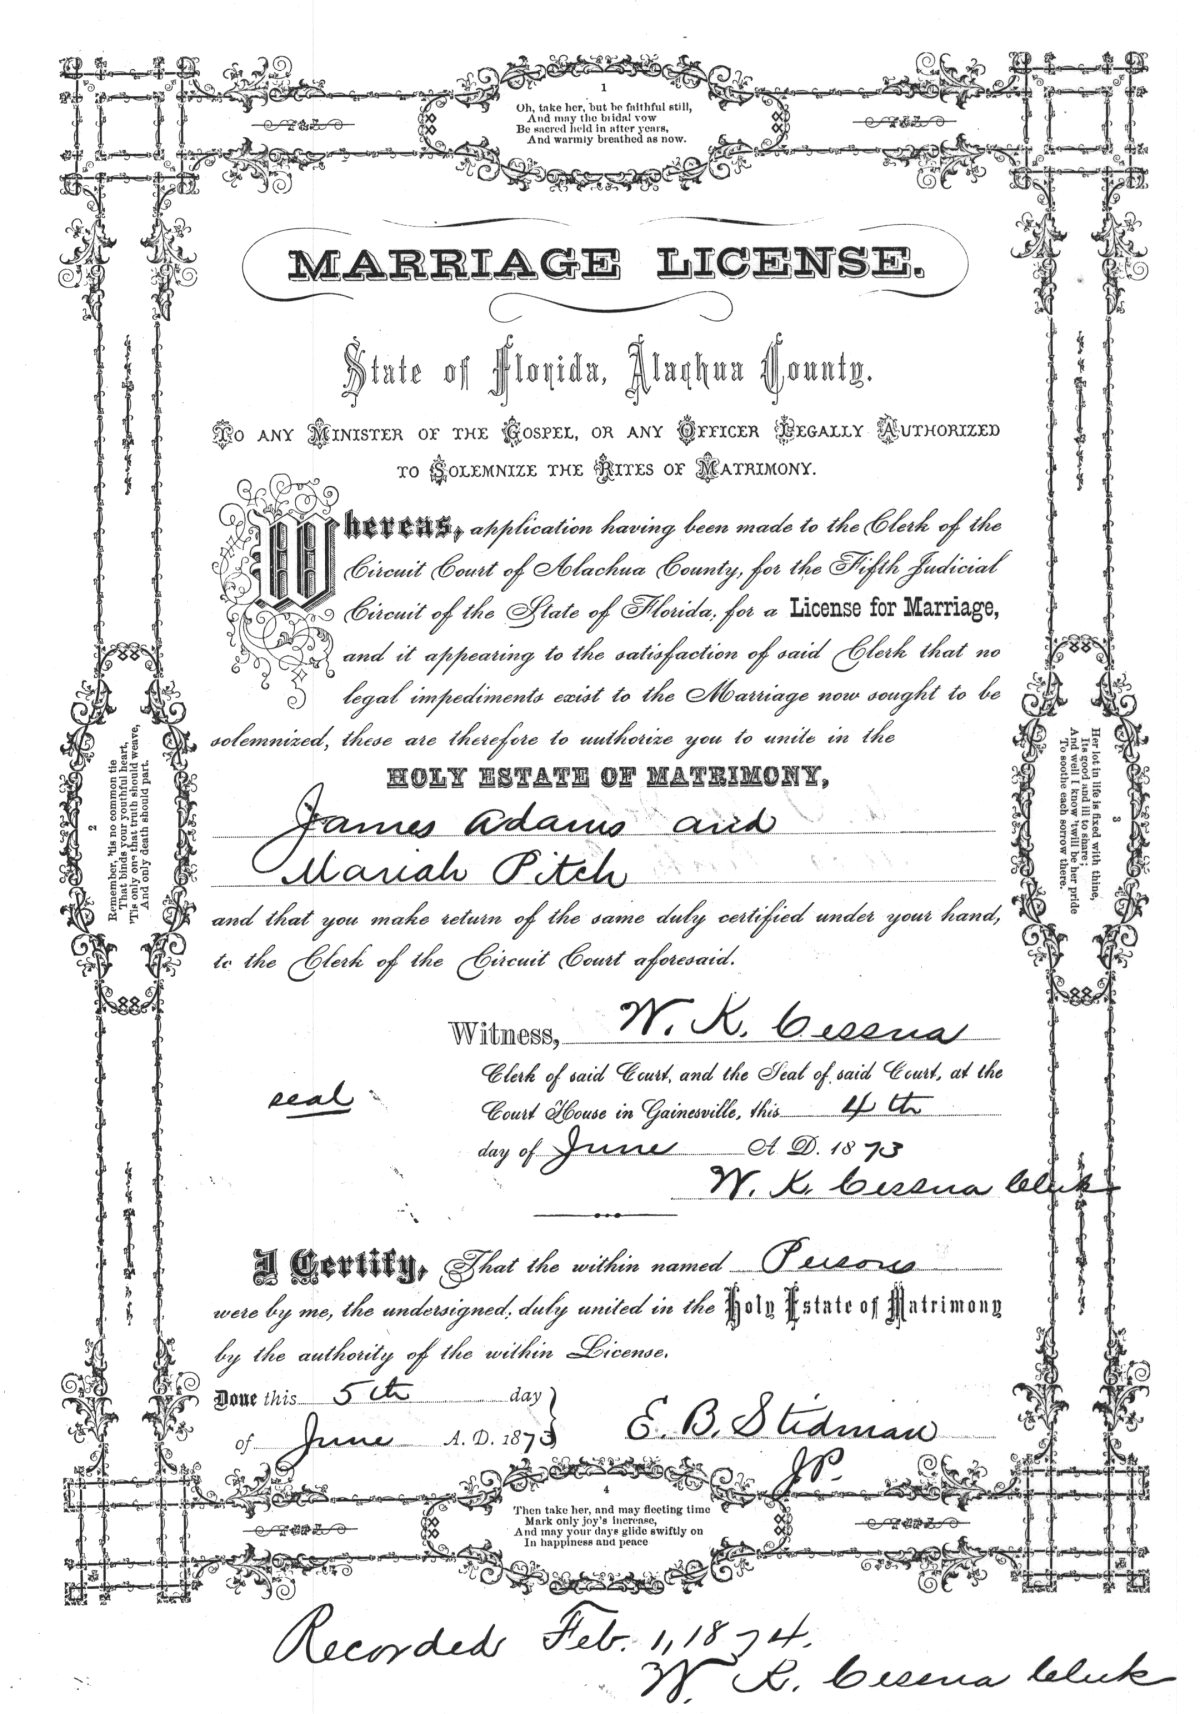 1
Oh, take her, but be faithful still,
And may the bridal vow
Be sacred held in after years,
And warmly breathed as now.
MARRIAGE LICENSE.
State of Florida, Alachua County.
TO ANY MINISTER OF THE GOSPEL, OR ANY OFFICER LEGALLY AUTHORIZED
TO SOLEMNIZE THE RITES OF MATRIMONY.
Whereas, application having been made to the Clerk of the
Circuit Court of Alachua County, for the Fifth Judicial
Circuit of the State of Florida, for a License for Marriage,
and it appearing to the satisfaction of said Clerk that no
legal impediments exist to the Marriage now sought to be
solemnized, these are therefore to authorize you to unite in the
HOLY ESTATE OF MATRIMONY,
James Adams and
Mariah Pitch
and that you make return of the same duly certified under your hand,
to the Clerk of the Circuit Court aforesaid.
Witness, W. K. Cessna
Clerk of said Court, and the Seal of said Court, at the
seal
Court House in Gainesville, this 4th
day of June A. D. 1873
W. K. Cessna Clerk
I Certify, That the within named Persons
were by me, the undersigned, duly united in the Holy Estate of Matrimony
by the authority of the within License.
Done this 5th day
of June A. D. 1873
E. B. Stidman
JP.
2
Remember, 'tis no common tie
That binds your youthful heart,
'Tis only one that truth should weave,
And only death should part.
3
Her lot in life is fixed with thine,
Its good and ill to share;
And well I know 'twill be her pride
To soothe each sorrow there.
4
Then take her, and may fleeting time
Mark only joy's increase,
And may your days glide swiftly on
In happiness and peace
Recorded Feb. 1, 1874.
W. K. Cessna Clerk